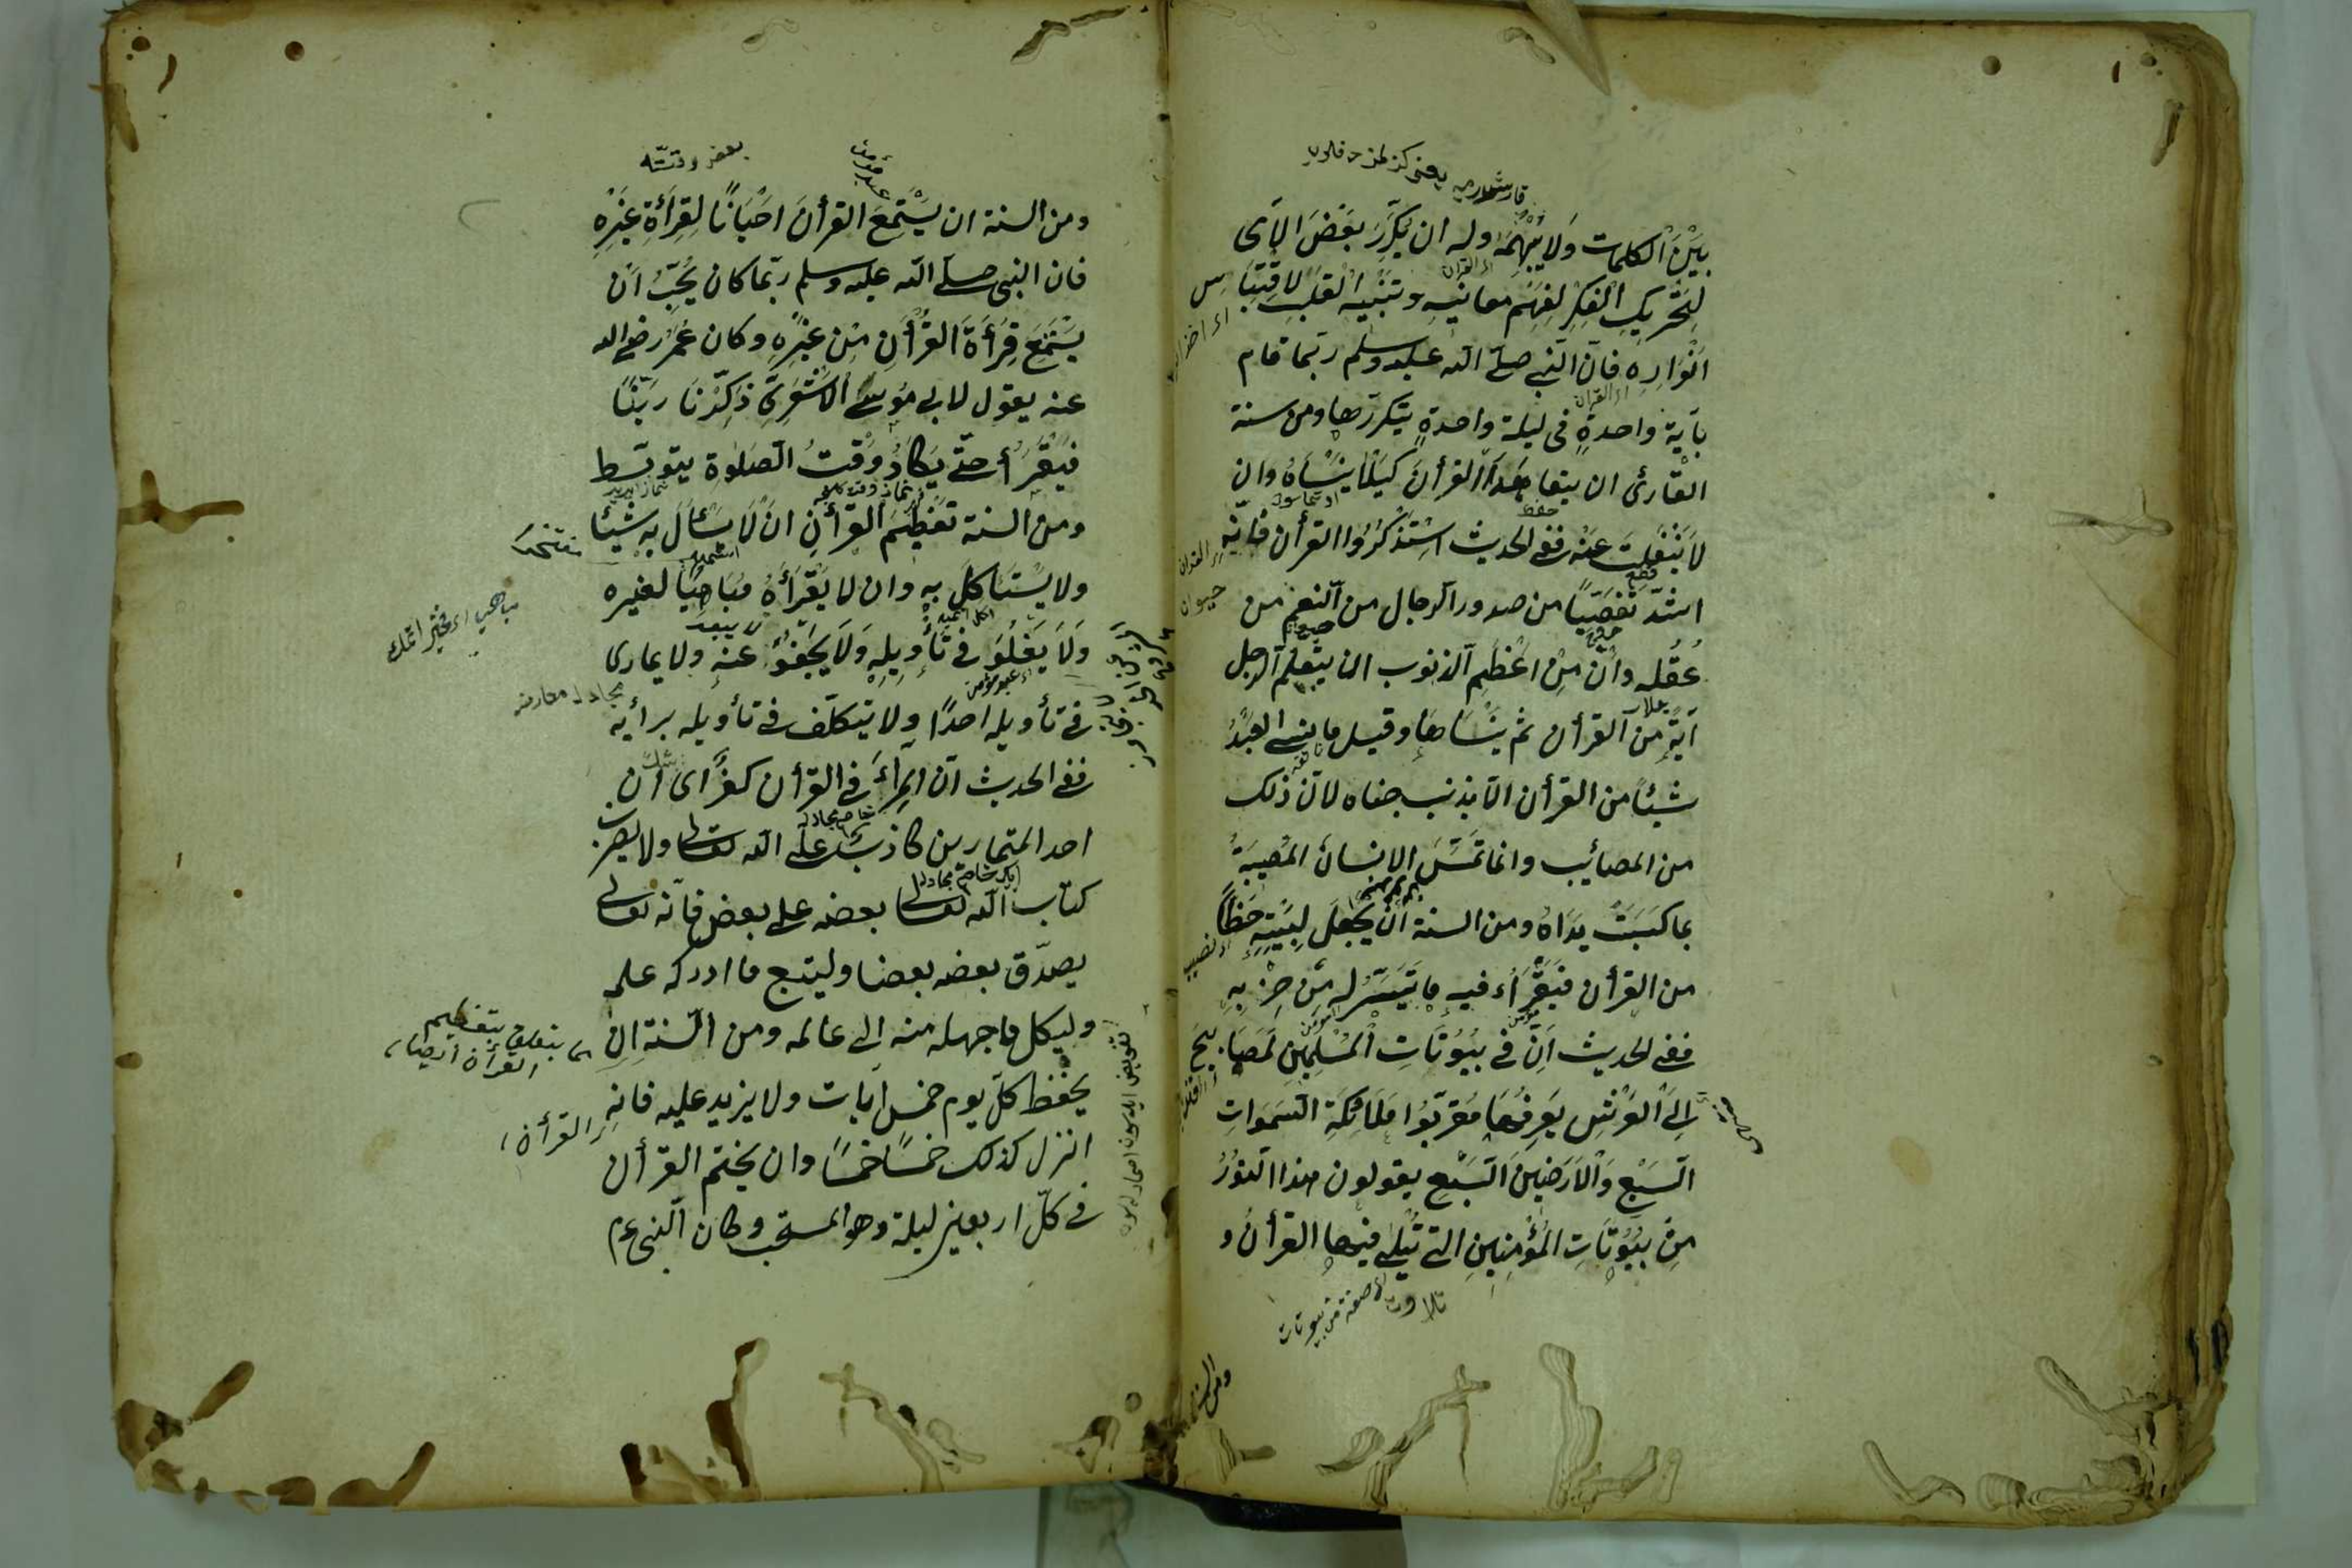 بَيْنَ الْكلمات وَلَا يُبْهِمَهُ وله ان يُكَرِّرَ بَعْضَ الْآىِ
لِتَحْرِيكِ الْفِكْرِ لِفَهْمِ معانيهِ وتَنْبيهِ الْقَلْبِ لِاقْتِبَاسِ
اَنْوَارِه فانّ النّبى صلّى الله عليه وسلم ربّما قام
بآية واحدةٍ فى ليلة واحدةٍ يتكررها ومن سنة
القارئ ان يتعاهد القرأنَ كَيْلَا يَنْسَاهُ وان
لا يَنْفَلِتَ عَنْه ففى الحديث اِسْتَذْكِرُوا القرأن فَاِنّه
اشدّ تَفَصِّيًا من صدور الرجال من النّعم من
عُقُله وانّ مِنْ اَعْظَمِ الذنوب ان يتعلّم الرجل
آيةً من القرأن ثم يَنْسَاهَا وقيل ما نسى العَبْدُ
شيئًا من القرأن الّا بذنب جناه لانّ ذلك
من المصائب وانما تَمَسُّ الانسانَ المُصِيبَةُ
بما كَسَبَتْ يَدَاهُ ومن السنة اَنْ يَجْعَلَ لِبَيْتِهِ حَظًّا
من القرأن فَيَقْرَاُ فيهِ ما تَيَسَّرَ له مِنْ حِزْبِهِ
ففى الحديث اَنَّ فى بُيُوتَاتِ الْمُسْلِمِينَ لَمَصَابِيحَ
اِلَى الْعَرْشِ يَعْرِفُهَا مُقَرَّبُوا مَلَائِكَةِ السَّمَوَاتِ
السَّبْعِ وَالْاَرَضِينَ السَّبْعِ يقولون هذا النّورُ
مِنْ بُيُوتَاتِ الْمُؤْمِنِينَ التى تُتْلَى فيها القرأنُ و
تلاوت
صفة من بيوتات
ومن السنة
بعض وقتته
ومن السنة ان يَسْتَمِعَ القرأنَ اَحْيَانًا لِقِرَأَةِ غَيْرِهِ
فان النبى صلّى الله عليه وسلم ربّما كان يُحِبُّ اَنْ
يَسْتَمِعَ قِرَأَةَ الْقُرْأَنِ مِنْ غَيْرِهِ وكان عُمَرُ رضى الله
عنه يقول لابى مُوسَى الْاَشْعَرِىِّ ذَكِّرْنَا رَبَّنَا
فَيَقْرَأُ حتّى يَكَادُ وَقْتُ الصّلوة يتوسّط
ومن السنة تَعْظِيمُ القرأنِ انْ لَا يَسْأَلَ بِه شيئًا
ولا يَسْتَأكِلَ بِهِ وان لا يَقْرَأَهُ مُبَاهِيًا لغيره
وَلَا يَغْلُوَ فى تَأْوِيلِهِ وَلَا يَجْفُوَ عنهِ ولا يمارى
فى تأويله احدًا ولا يتكلّف فى تأويله برأيه
ففى الحديث انّ المِرَاءَ فى القرأن كفرٌ اى ان
احد المتمارين كاذب على الله تعالى ولا يضرب
كتاب الله تعالى بعضه على بعض فانه تعالى
يصدّق بعضه بعضا وليتبع ما ادركه علمه
وليكل ما جهله منه الى عالمه ومن السّنة ان
يحفظ كلّ يوم خمس آيات ولا يزيد عليه فانه
انزل كذلك خمسًا خمسًا وان يختم القرأن
فى كلّ اربعين ليلة وهو المستحب وكان النّبى عم
مجادله معارضه
ما يتعلق بتعظيم
القرأن ايضا
القرأن